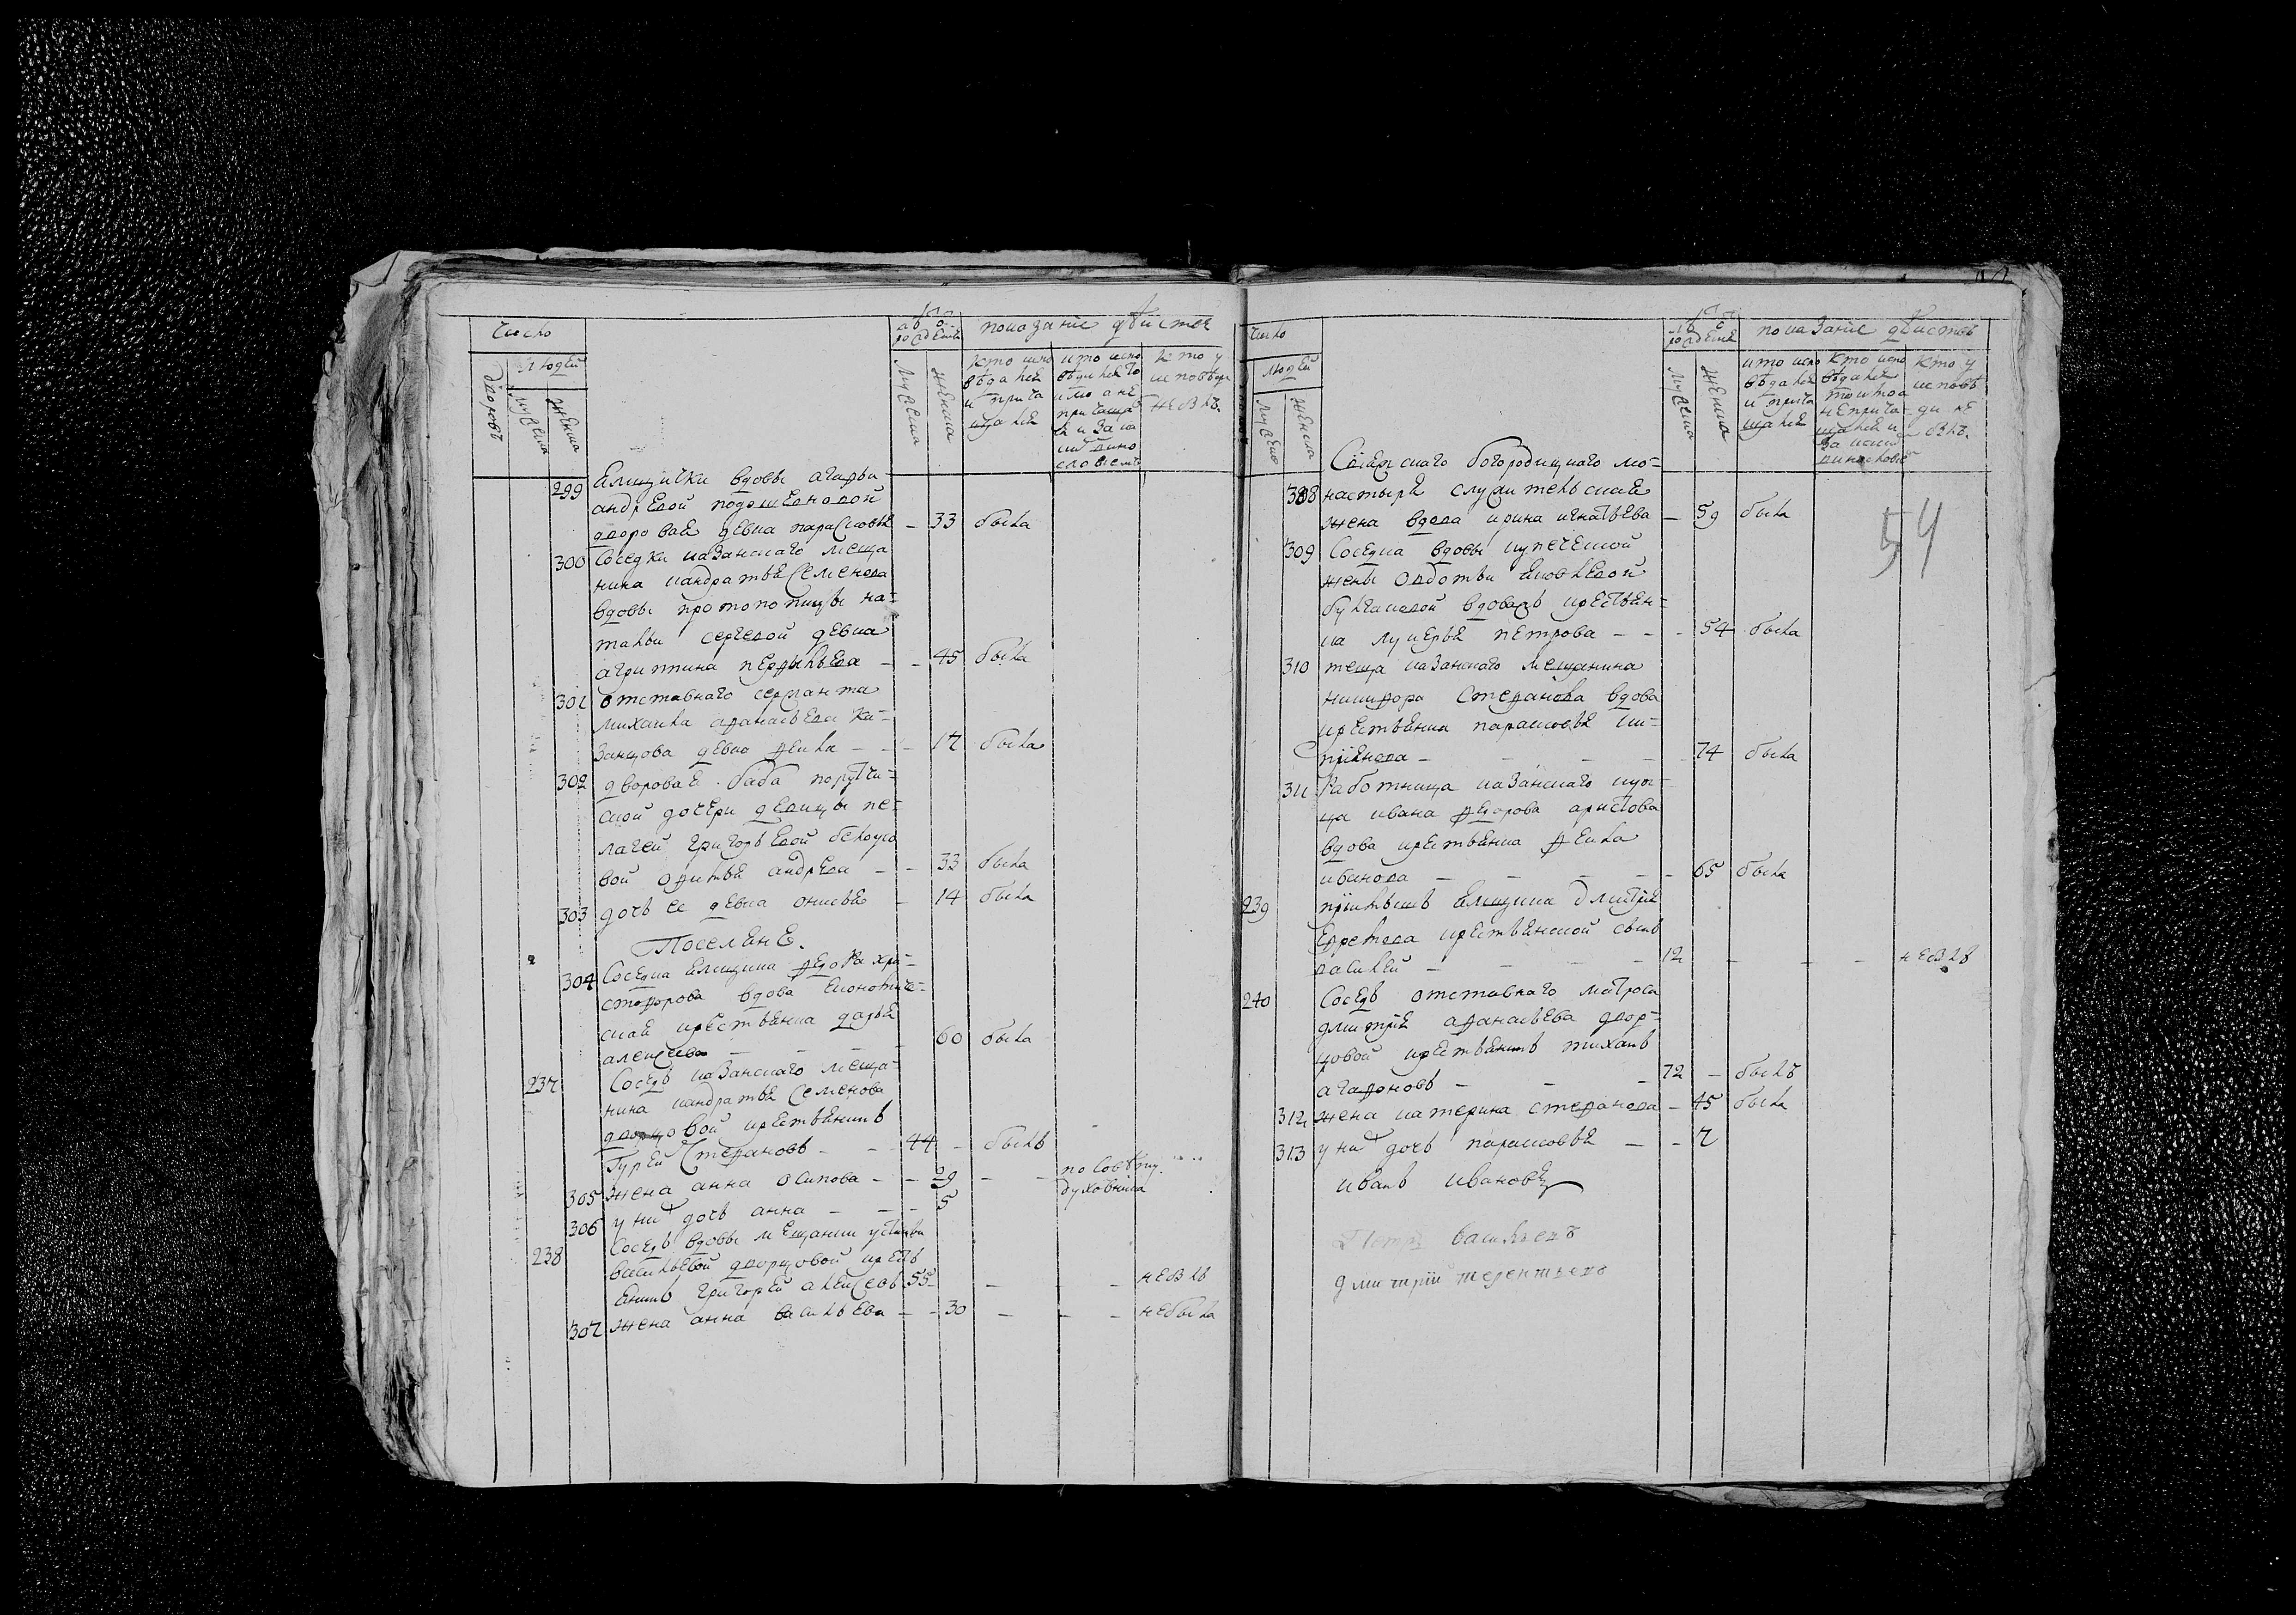 число
людей
дворовъ
мужеска
женска
лѣта
от
рожденїя
показанїе дѣйстея
мужеска
женска
кто испо
вѣдалсѧ
и прича
щалсѧ
кто испо
вѣдалсѧ то
кмо а не
причаща
лсѧ и за ка
ким вино
словїемъ
кто у
исповѣди
не былъ
299 Ямщички вдовы агафьи
андрѣевой подошевновой
дворовая девка парасковья – 33 была
300 Соседки казанскаго меща
нина кандратья Семенова
вдовы протопопицы на=
тальи сергеевой девка
агриппина – – 45 была
301 отставнаго сержанта
михаила афанасьева ка=
занцова девка фекла – – 17 была
302 дворовая баба поручи=
ской дочери девицы пе=
лагеи григорьевой
вой афимья андреева – – 33 была
303 дочь ее девка онисья – 14 была
Поселянѣ
304 Соседка ямщика федота хри=
стофорова вдова економиче=
ская крестьянка дарья
алексеева – – – 60 была
237 Соседъ казанскаго меща=
нина кандратья Семенова
дворцовой крестьянинъ
Гурей Стефановъ – – 44 – былъ
305 жена анна осипова – – 29 – – по совѣту
духовника
306 у них дочь анна – – – 5
238 Соседъ вдовы мещанки устиньи
васильевой дворцовой крест
янинъ григорей алексеевъ 55 – – – не былъ
307 жена анна васильева – – 30 – – – не была
число
людей
мужеска
женска
лѣта
от
рожденїя
показанїе дѣйстев
мужеска
женска
кто испо
вѣдалсѧ
и прича
щалсѧ
кто испо
вѣдалсѧ
токмо а
не прича
щалсѧ и
за каким
винословїе
кто у
исповѣ
ди не
былъ
54
богородицкаго мо=
308 настыря служительская
жена вдова ирина игнатьева – 59 была
309 Соседка вдовы купеческой
жены федотьи яковлевой
булгаковой вдова крестьян=
ка лукерья петрова – – – 54 была
310 теща казанскаго мещанина
никифора Стефанова вдова
крестьянка парасковья ки=
прїянова – – – – – 74 была
311 Работница казанскаго куп
ца ивана федорова аристова
вдова крестьянка фекла
иванова – – – – – 65 была
239 прїимышъ ямщика дмитрїя
ефремова крестьянской сынъ
василей – – – – 12 – – – не былъ
240 Соседъ отставнаго матроса
дмитрїя афанасьева двор=
цовой крестьянинъ тиханъ
агафоновъ – – – 72 – былъ
312 жена катерина стефанова – 45 была
313 у них дочь парасковья – – 7
иванъ ивановъ
Петръ васильевъ
дмитрїй терентьевъ